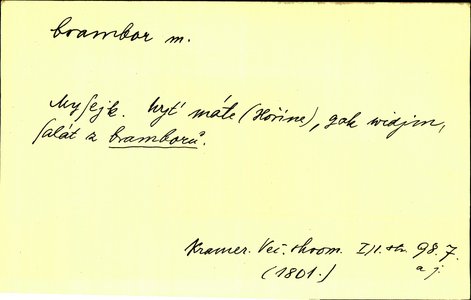 brambor m.
Mysejk. Nyť máte (Hořine), gak widjm,
salát z bramborů.
Kramer. Več. shrom. I/1. str. 98. 7.
(1801.) a j.